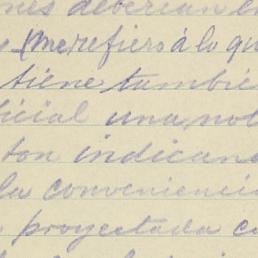 nes deberían en
(me refiero á lo qu
tiene tambié
icial una not
ton indican
la convenienci
proyectada co